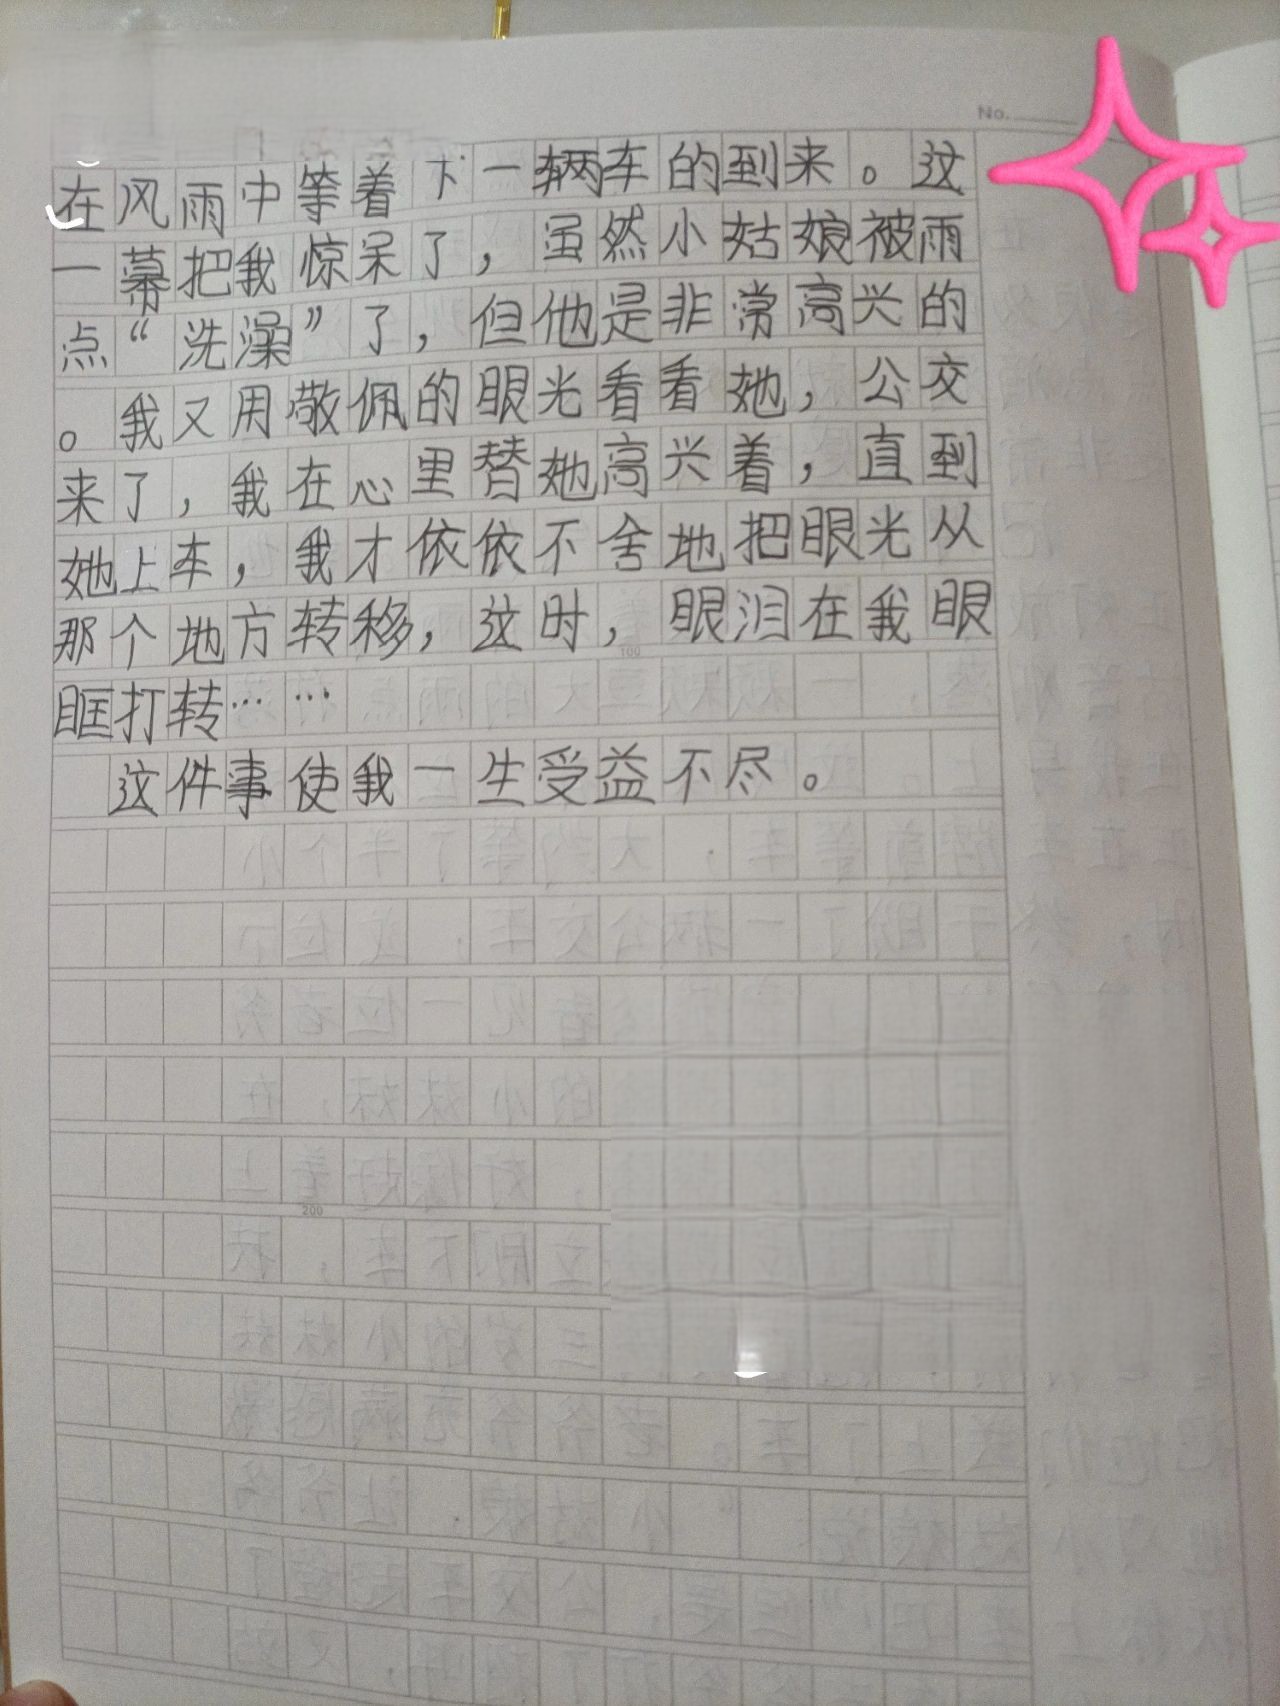 No.
在风雨中等着下一辆车的到来。这
一幕把我惊呆了，虽然小姑娘被雨
点“洗澡”了，但他是非常高兴的
。我又用敬佩的眼光看看她，公交
来了，我在心里替她高兴着，直到
她上车，我才依依不舍地把眼光从
那个地方转移，这时，眼泪在我眼
眶打转……
100
这件事使我一生受益不尽。
200